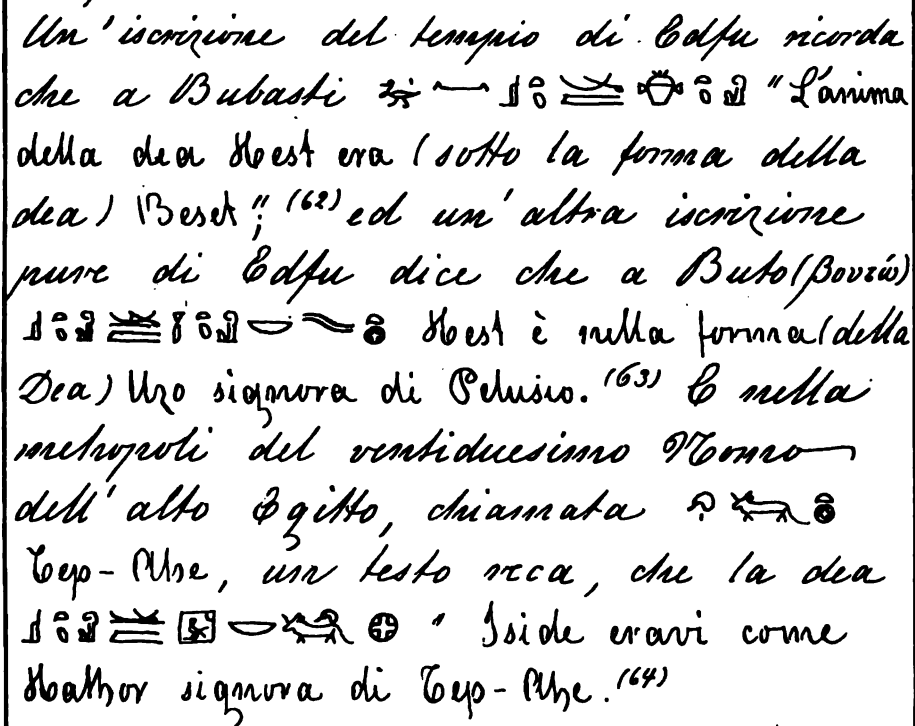 Un'iscrizione del tempio di Edfu ricorda
che a Bubasti "L'anima
della dea Hest era (sotto la forma della
dea) Beset"; (62) ed un'altra iscrizione
pure di Edfu dice che a Buto (βουτώ)
Hest è nella forma (della
Dea) Uzo signora di Pelusio. (63) E nella
metropoli del ventiduesimo Nomo
dell'alto Egitto, chiamata
Tep-Ahe, un testo reca, che la dea
" Iside eravi come
Hathor signora di Tep-Ahe. (64)